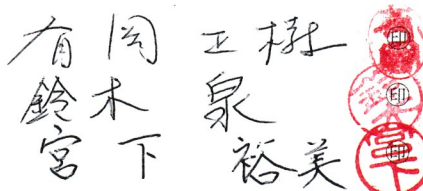 有岡 正樹 ㊞
鈴木 泉 ㊞
宮下 裕美 ㊞